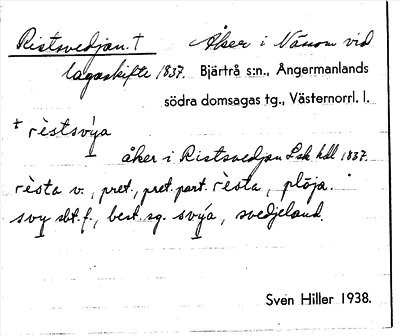 Ristsvedjan. † Åker i Nässom vid
lagaskifte 1837. Bjärtrå s:n., Ångermanlands
södra domsagas tg., Västernorrl. l.
† rèstsvýa
åker i Ristsvedjan Lsk hdl 1837.
rèsta v., pret., pret. part. rèsta, plöja.
svy sbt. f., best. sg. svýa, svedjeland.
Sven Hiller 1938.